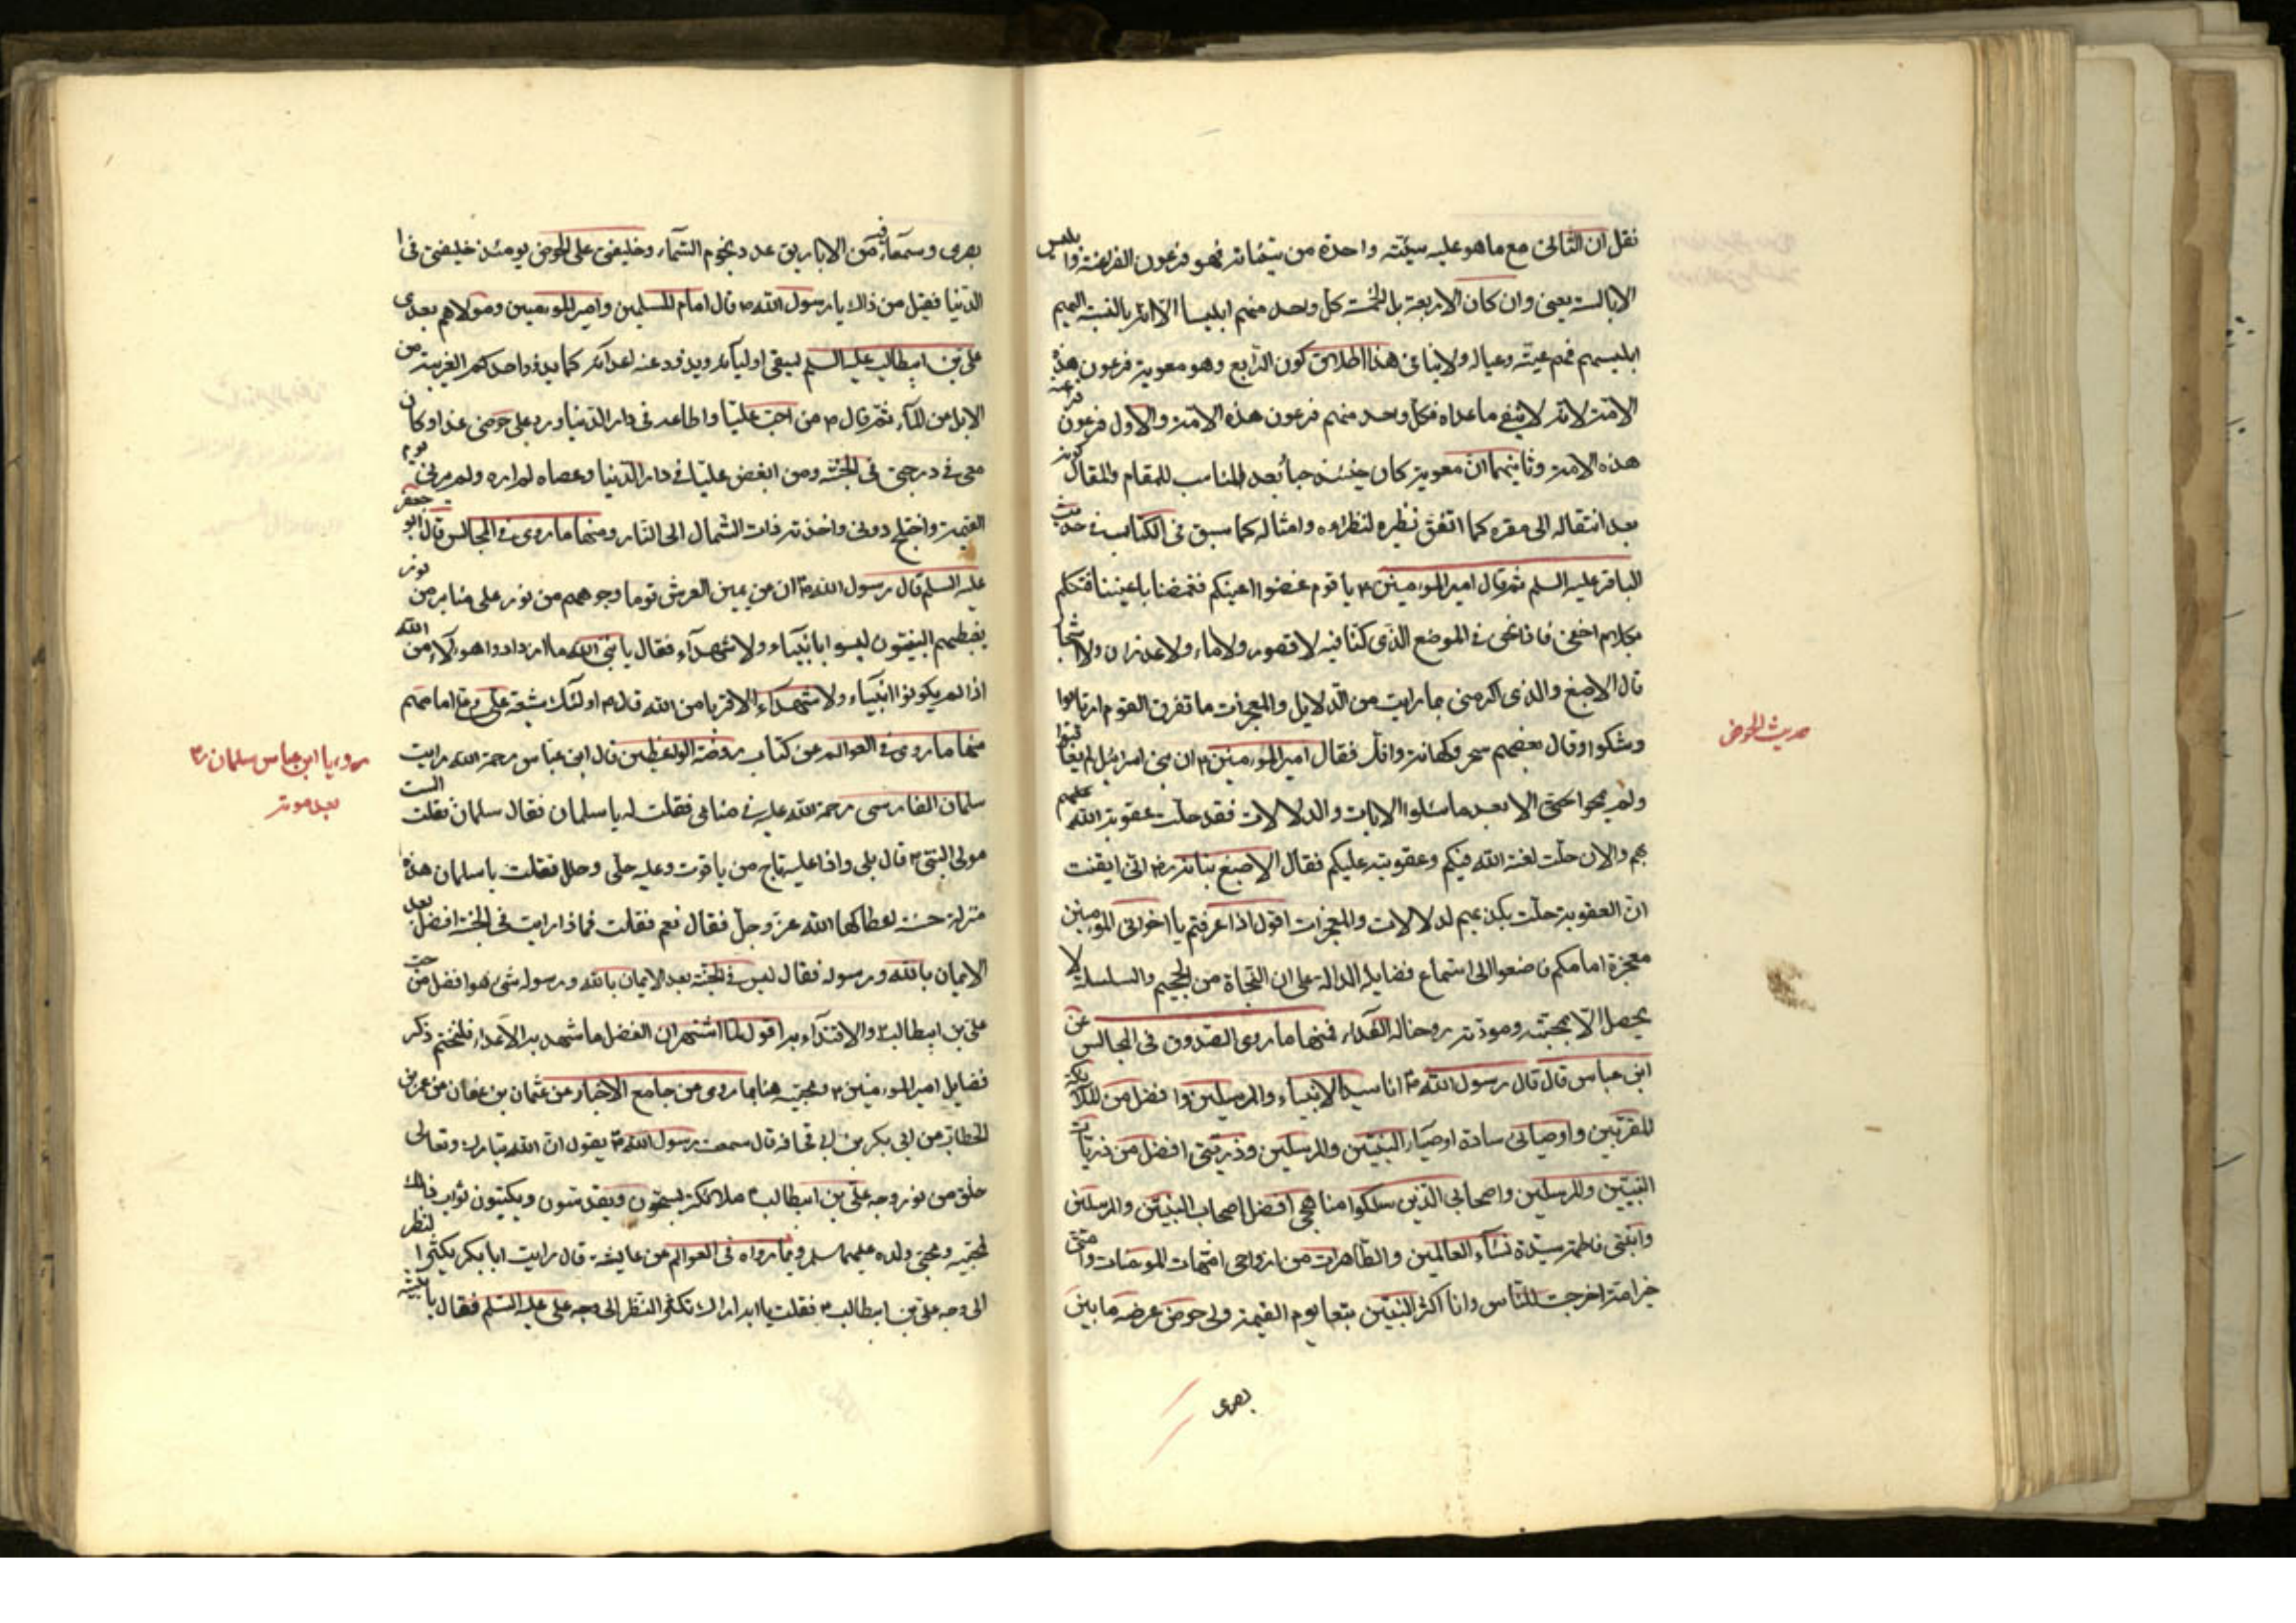 نقل ان الثانى مع ما هو عليه سيئته واحدة من سيئاته فهو فرعون الفراعنة وابليس
الابالسه يعنى وان كان الاربعة بل الخمسة كل واحد منهم ابليسا الا انه بالنسبة اليهم
ابليسهم فهم رعيته وعياله ولا ينافى هذا اطلاق كون الرابع وهو معوية فرعون هذه
الامة لانه لا ينفى ما عداه فكل واحد منهم فرعون هذه الامة والاول فرعون فرعنة
هذه الامة وثانيهما ان معوية كان حينئذ حيا بعد المناسب للمقام والمقال كونه
بعد انتقاله الى مقره كما اتفق نظيره لنظراءه وامثاله كما سبق فى الكتاب فى حديث
الباقر عليه السلم ثم قال امير المؤمنين ع يا قوم غضوا اعينكم فغمضنا باعيننا فتكلم
بكلام اخفى فاذا نحن فى الموضع الذى كنا فيه لا قصور ولا ماء ولا غدران ولا اشجار
قال الاصبغ والذى اكرمنى بما رايت من الدلايل والمعجزات ما تفرق القوم ارتابوا
وشكوا وقال بعضهم سحر وكهانة وافك فقال امير المؤمنين ع ان بنى اسرائيل لم يعاقبوا
ولم يمحوا حتى الا بعد ما سئلوا الايات والدلالات فقد حلت عقوبة الله عليهم
بهم والان حلت لعنة الله فيكم وعقوبته عليكم فقال الاصبغ بن نباته ره انى ايقنت
ان العقوبة حلت بتكذيبهم لدلالات والمعجزات اقول اذا عرفتم يا اخوانى المؤمنين
معجزة امامكم فاصغوا الى استماع فضايله الدالة على ان النجاة من الجحيم والسلسله لا
يحصل الا بمحبته ومودته روحنا له الفداء فمنها ما روى الصدوق فى المجالس عن
ابن عباس قال قال رسول الله ص انا سيد الانبياء والمرسلين وافضل من الملائكة
المقربين واوصيائى سادة اوصياء النبيين والمرسلين وذريتى افضل من ذريات
النبيين والمرسلين واصحابى الذين سلكوا مناهجى افضل اصحاب النبيين والمرسلين
وابنتى فاطمة سيدة نساء العالمين والطاهرات من ازواجى امهات المومنات وامتى
خير امة اخرجت للناس وانا اكثر النبيين تبعا يوم القيمة ولى حوض عرضه ما بين
بصرى
حديث الحوض
بصرى وسمعا فيه من الاباريق عدد نجوم السماء وخليفتى على الحوض يومئذ خليفتى فى ا
الدنيا فقيل من ذاك يا رسول الله ص قال امام المسلمين وامير المومنين ومولاهم بعدى
على بن ابيطالب عليه السلم ليسقى اولياءه ويذود عنه اعدائه كما يذود احدكم الغريبة من
الابل عن الماء ثم قال ص من احب عليا واطاعه فى دار الدنيا ورد على حوضى غدا وكان
معى فى درجتى فى الجنة ومن ابغض عليا فى دار الدنيا وعصاه لم اره ولم يرنى يوم
القيمة واختلج دونى واخذ به ذات الشمال الى النار ومنها ما روى فى المجالس قال ابو جعفر
عليه السلم قال رسول الله ص ان عن يمين العرش قوما وجوههم من نور على منابر من نور
يغبطهم النبيون ليسوا بانبياء ولا شهداء فقال يا نبى الله ما ازدادوا هولاء من الله
اذا لم يكونوا انبياء ولا شهداء الا قربا من الله قال ص اولئك شيعة على وع امامهم
منها ما روى فى العوالم عن كتاب روضة الواعظين قال ابن عباس رحمة الله رايت
سلمان الفارسى رحمة الله عليه فى منامى فقلت له يا سلمان فقال سلمان فقلت الست
مولى النبى ص قال بلى واذا عليه تاج من ياقوت وعليه حلى وحلل فقلت يا سلمان هذه
منزلة حسنة اعطاكها الله عز وجل فقال نعم فقلت فماذا رايت فى الجنة افضل بعد
الايمان بالله ورسوله فقال ليس فى الجنة بعد الايمان بالله ورسوله شئ هو افضل من حب
على بن ابيطالب ع والاقتداء به اقول لما اشتهر ان الفضل ما شهد به الاعداء فلنختم ذكر
فضايل امير المؤمنين ع ومحبته هنا بما روى من جامع الاخبار عن عثمان بن عفان عن عمر بن
الخطاب عن ابى بكر بن ابى قحافه قال سمعت رسول الله ص يقول ان الله تبارك وتعالى
خلق من نور وجه على بن ابيطالب ع ملائكة يسبحون ويقدسون ويكتبون ثواب ذلك
لمحبيه ومحبى ولده عليهم السلم وبما رواه فى العوالم عن عايشه قال رايت ابا بكر يكثر ا لنظر
الى وجه على بن ابيطالب ع فقلت يا ابه اراك تكثر النظر الى وجه على عليه السلم فقال يا بنية
رؤيا ابن عباس سلمان رض
بعد موته